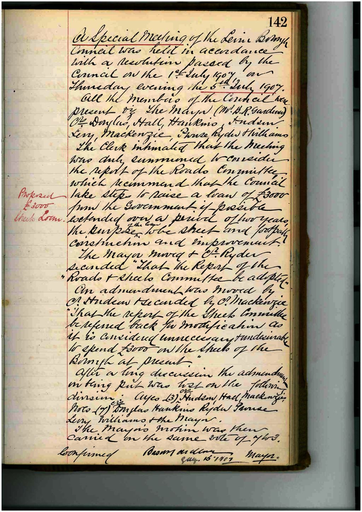 142
A Special Meeting of the Levin Borough
Council was held in accordance
with a resolution passed by the
Council on the 1st July 1907 on
Thursday evening the
July 1907.
All the members of the Council were
present viz The Mayor (Mr B.R. Gardener)
Crs Douglas, Hall, Hankins, Hudson,
Levy, Mackenzie, Prouse Ryder & Williams
The Clerk intimated that the Meeting
was duly summoned to consider
the report of the Roads Committee
which recommend that the Council
take steps to raise a loan of £3000
Proposed
£3000
Loan
from the Government if possible
extended over a period of two years,
the purpose of the loan to be street and footpath
construction and improvement.
The Mayor moved & Cr Ryder
seconded That the Report of the
Roads & Streets Committee be adopted
An admendment was moved by
Cr Hudson & seconded by Cr Mackenzie
"That the report of the Streets Committee
be referred back for modification as
it is considered unnecessary & undesirable
to spend £3000 on the streets of the
Borough at present.
After a long discussion the admendment
on being put was lost on the following
division: Ayes (3) Crs Hudson, Hall, Mackenzie,
Noes (7) Crs Douglas Hankins Ryder, Prouse
Levy Williams & the Mayor.
The Mayors motion was then
carried on the same vote of 7 to 3.
Confirmed
Mayor.